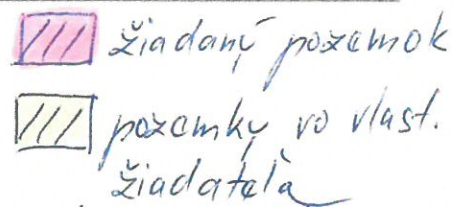 žiadaný pozemok
pozemky vo vlast.
žiadateľa